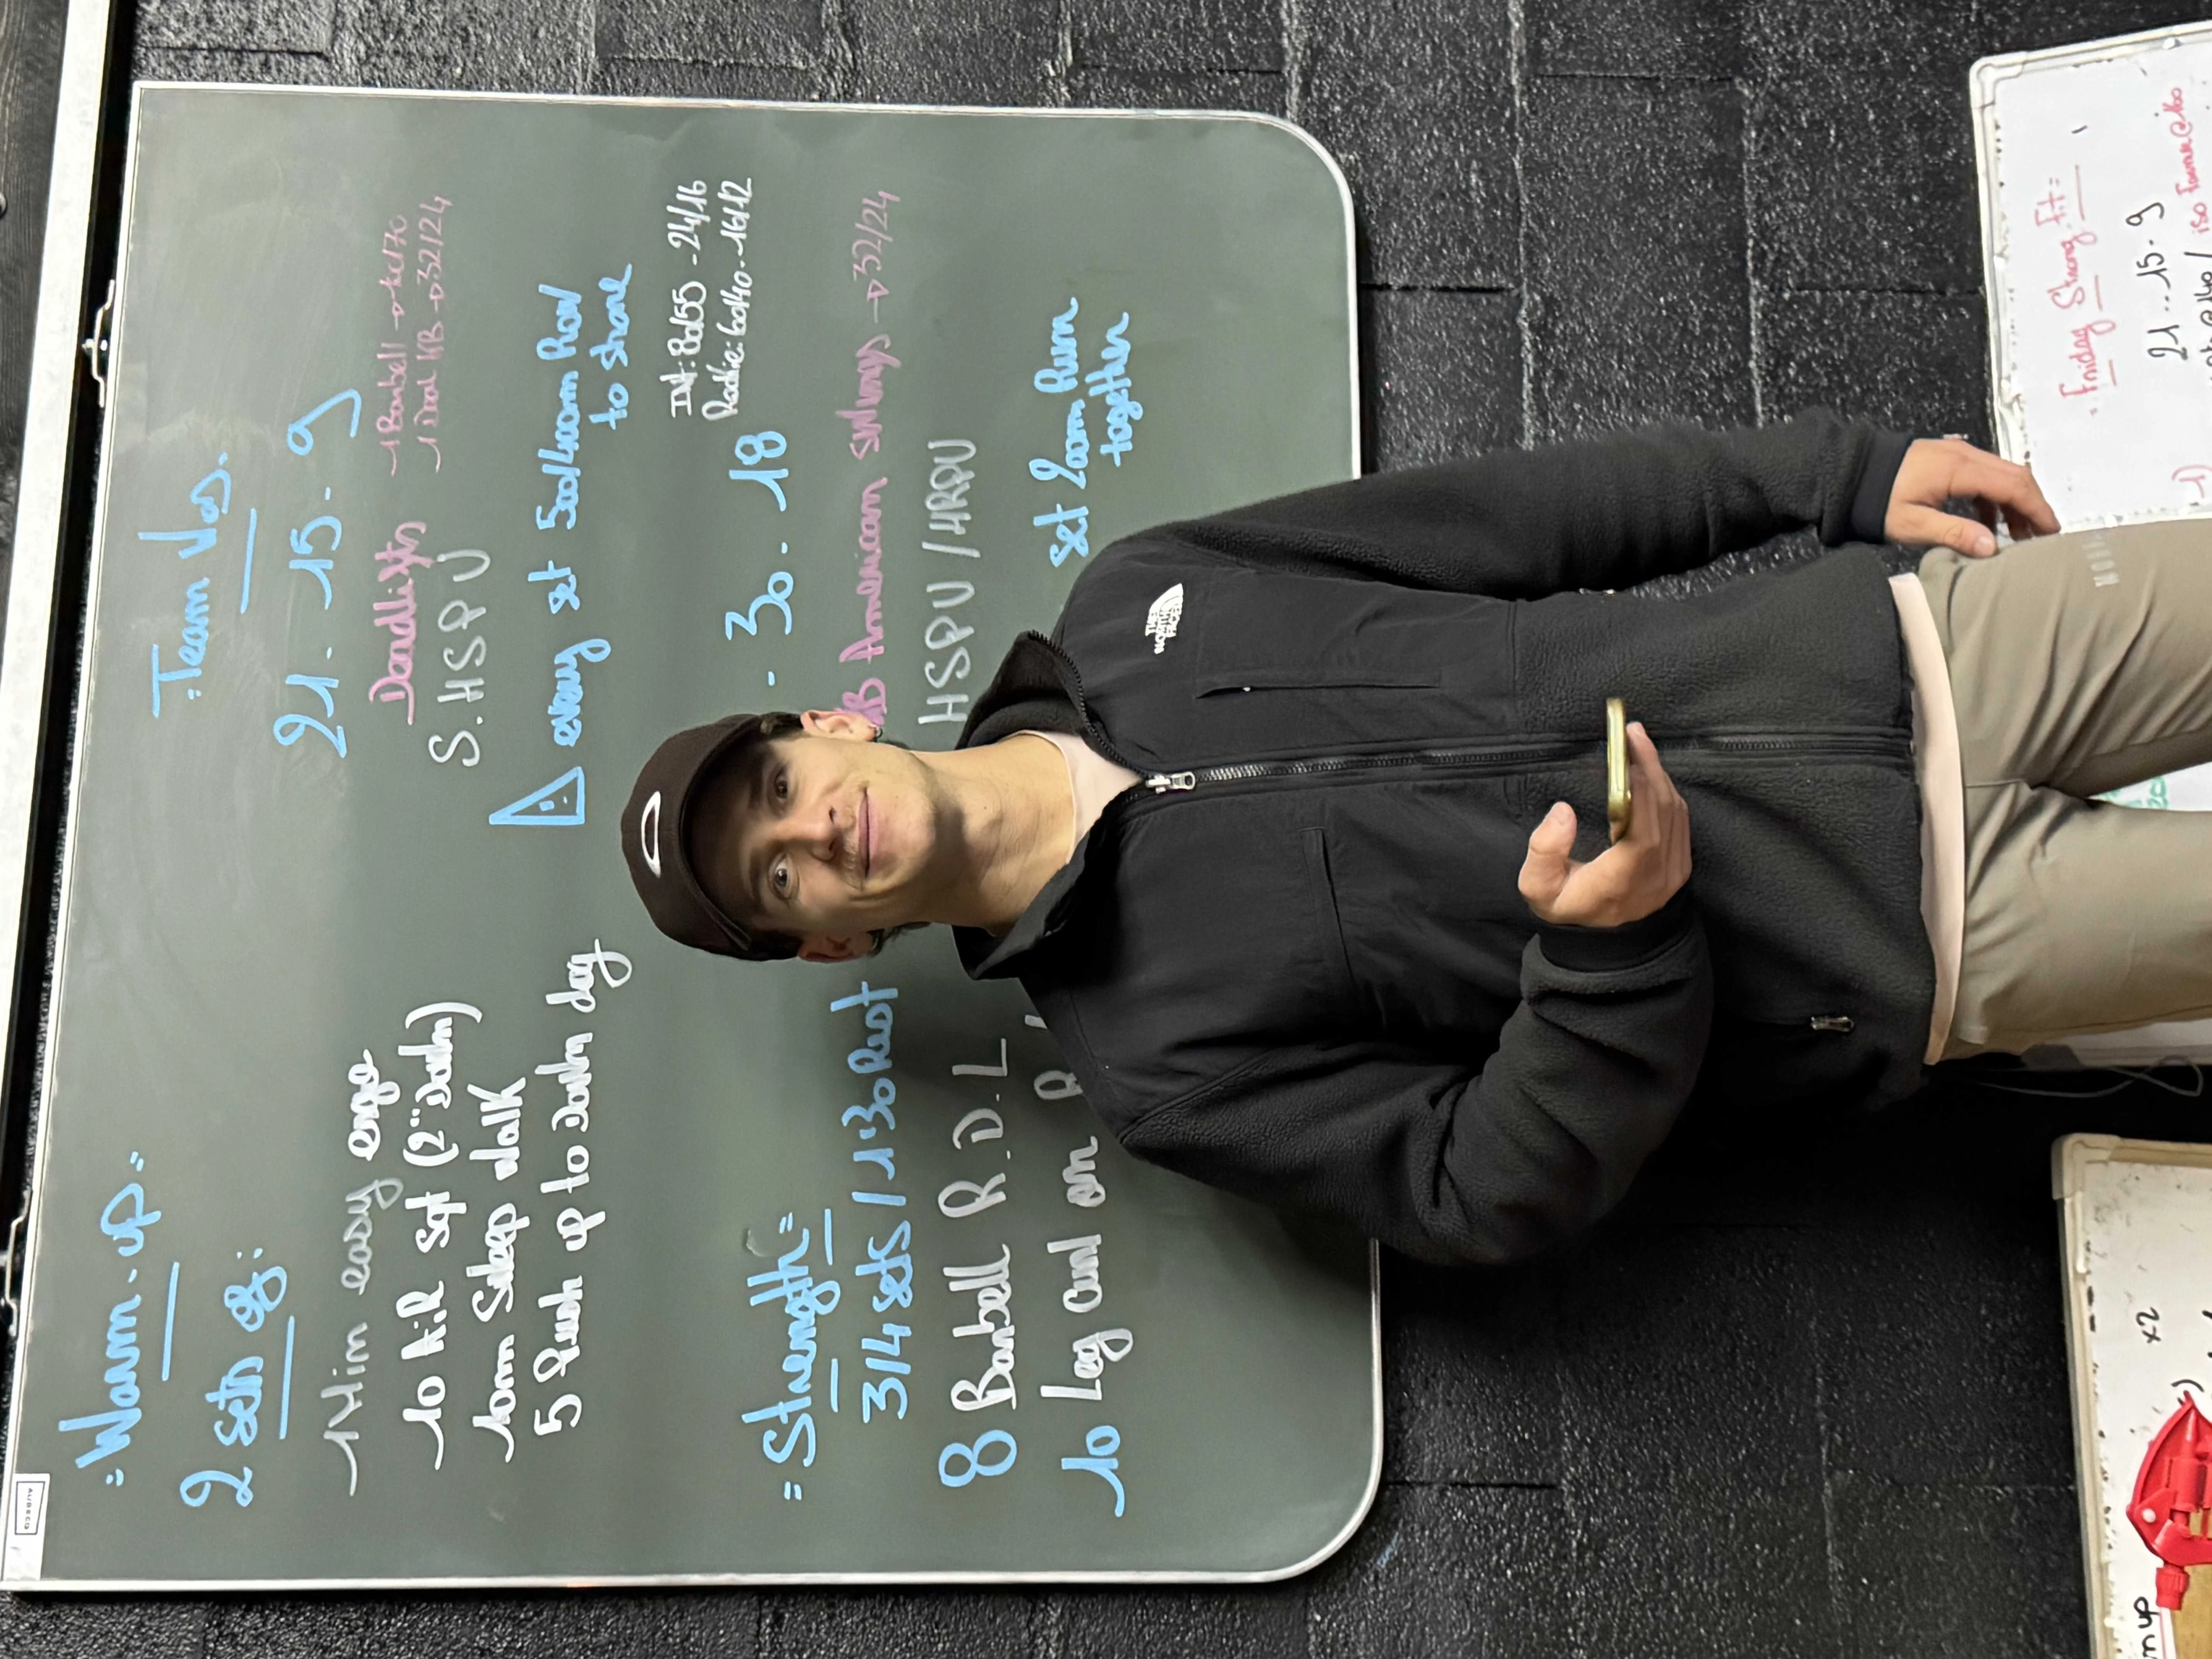 =Warm-up=
2 sets of:
1 Min easy erge
10 AiR sqt (2" Down)
10m Sideep walk
5 Push up to Down dog
=Strength=
3/4 sets / 1:30 Rest
8 Barbell R.D.L
10 Leg curl on
:Team Wos.
21.15-9
Deadlifts
1 Barbell
1 Dual KB → 32/24
S.HSPU
⚠ every set 500/400m Row
to share
Int: 80/55 - 24/16
Rookie: 60/40 - 16/12
- 30. 18
KB American swings → 32/24
HSPU / HRPU
set 200m Run
together
THE
NORTH
FACE
Friday Strong Fit=
21..15-9
x2
m up
AUBECQ